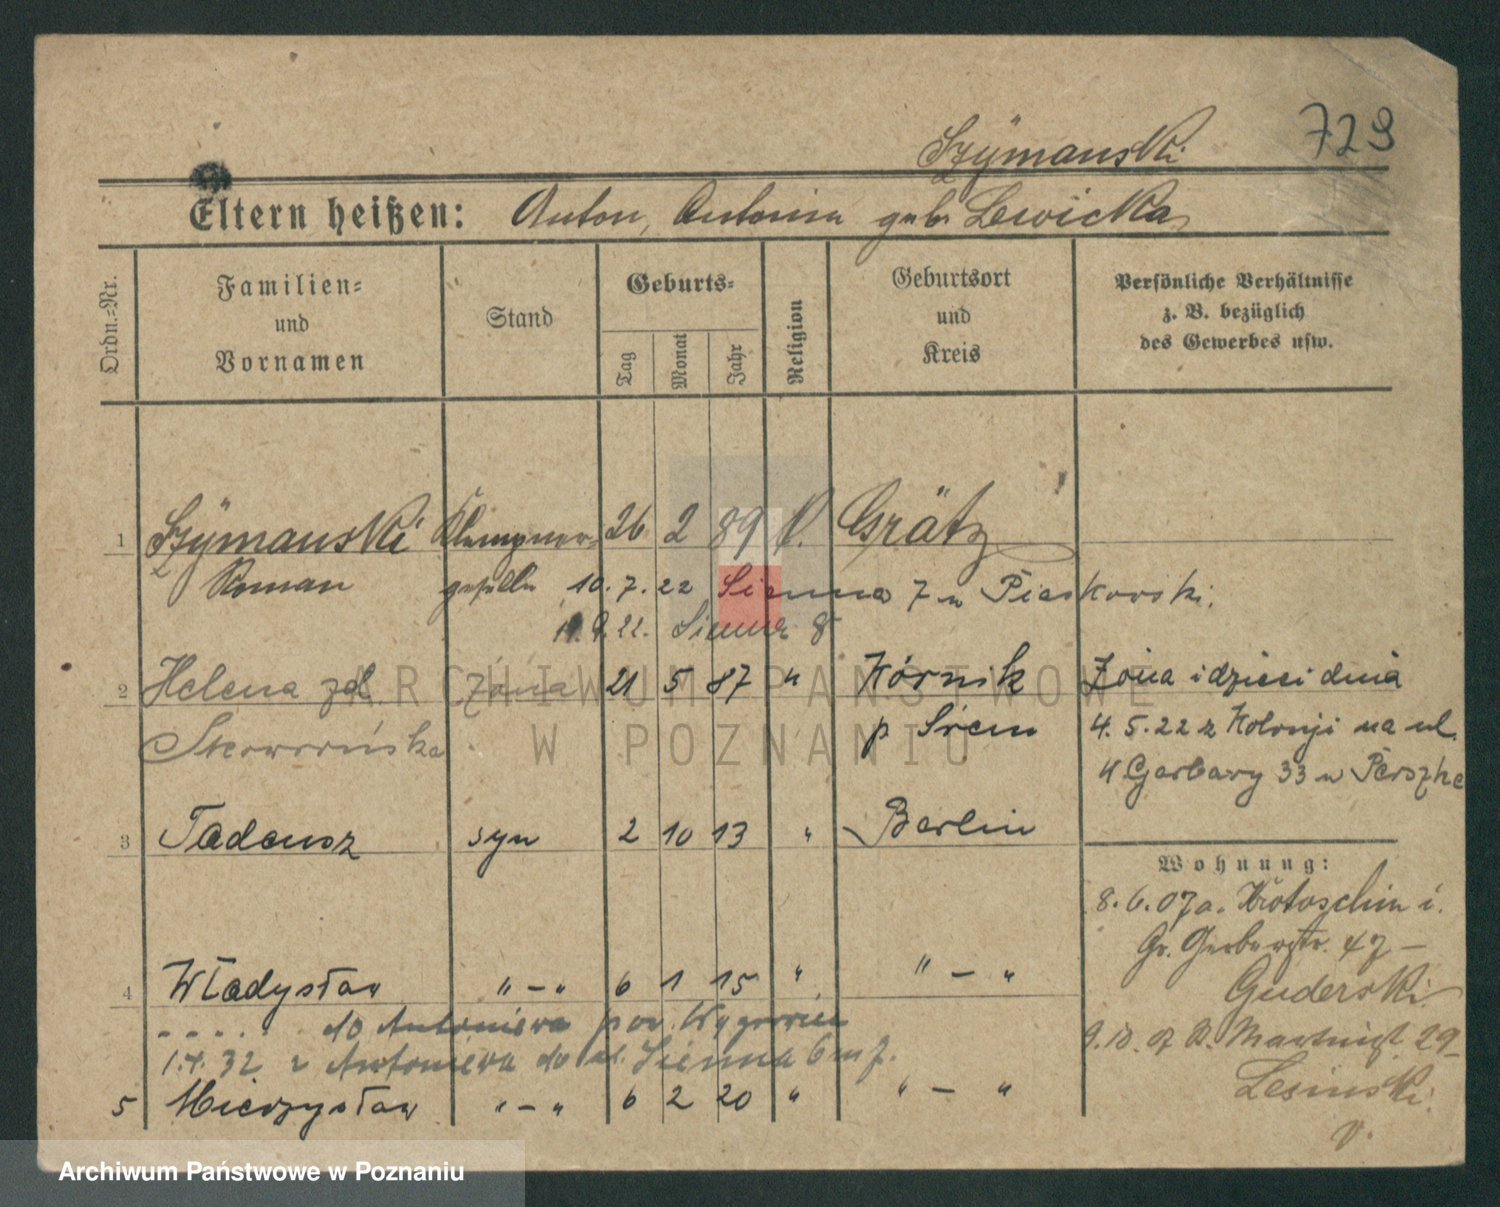 729
Szymanski
Eltern heißen: Anton, Antonina geb. Lewicka
Ordn.-Nr.
Familien- und Vornamen
Stand
Geburts-
Tag
Monat
Jahr
Religion
Geburtsort und Kreis
Persönliche Verhältnisse z. B. bezüglich des Gewerbes usw.
1 Szymanski Klempner- 26 2 89 k. Grätz
Roman geselle 10.7.22 Sienna 7 u Piaskowski.
9.22. Sienna 8
2 Helena zd. żona 21 5 87 " Kórnik Żona i dzieci dnia
Skoworońska p Śrem 4.5.22 z Kolonji na ul.
Garbary 33 u Perszke
3 Tadeusz syn 2 10 13 " Berlin
Wohnung:
8.6.07 a. Krotoschin i.
Gr. Gerberstr. 47 –
4 Władysław " – " 6 1 15 " " – "
Guderski
do Antoniewa pow. Wągrowiec
9.10.07 B. Martinist. 29 –
1.4.32 z Antoniewa do ul. Sienna 6 m 7.
Lesinski.
5 Mieczysław " – " 6 2 20 " " – "
V.
ARCHIWUM PAŃSTWOWE
W POZNANIU
Archiwum Państwowe w Poznaniu